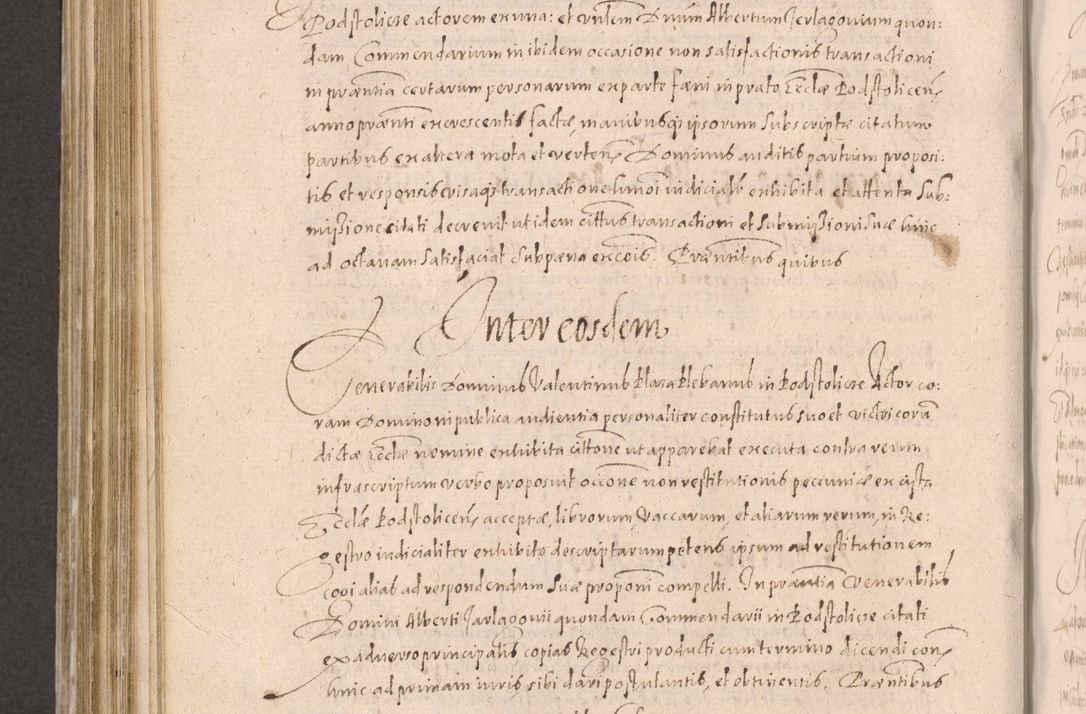 Podstolicze actorem ex una: et venlem Dnum Albertum Jerlagovium quon:
dam Commendarium in ibidem occasione non satisfactionis transactioni
in præntia certarum personarum ex parte fæni in prato Eccłæ Podstolicen
anno prænti excrescentis factæ, manibusq ipsorum subscriptæ citatum
partibus ex altera mota et verten Dominus auditis partium proposi:
tis et responsis visaq transactione hmoi iudicialr exhibita et attenta sub:
missione citati decrevit ut idem cittus transactioni et submissioni suæ hinc
ad octavam satisfaciat sub pæna excois. Præntibus quibus
Inter eosdem
Venerabilis Dominus Valentinus Klara Plebanus in Podstolicze Actor co:
ram Domino in publica audientia personaliter constitutus suo et victricorum
dictæ Eccłæ nomine exhibita cittone ut apparebat executa contra reum
infrascriptum verbo proposuit occone non restitutionis peccuniæ ex cista
Eccłæ Podstolicen acceptæ, librorum, vaccarum, et aliarum rerum, in Re:
gestro iudicialiter exhibito descriptarum petens ipsum ad restitutionem
cogi alias ad respondendum suæ proponi compelli. In præntia Venerabilis
Domini Alberti Jarlagovii quondam Commendarii in Podstolicze citati
ex adverso principalis copias Regestri producti cum termino dicendi con
hinc ad primam iuris sibi dari postulantis, et obtinentis. Præntibus